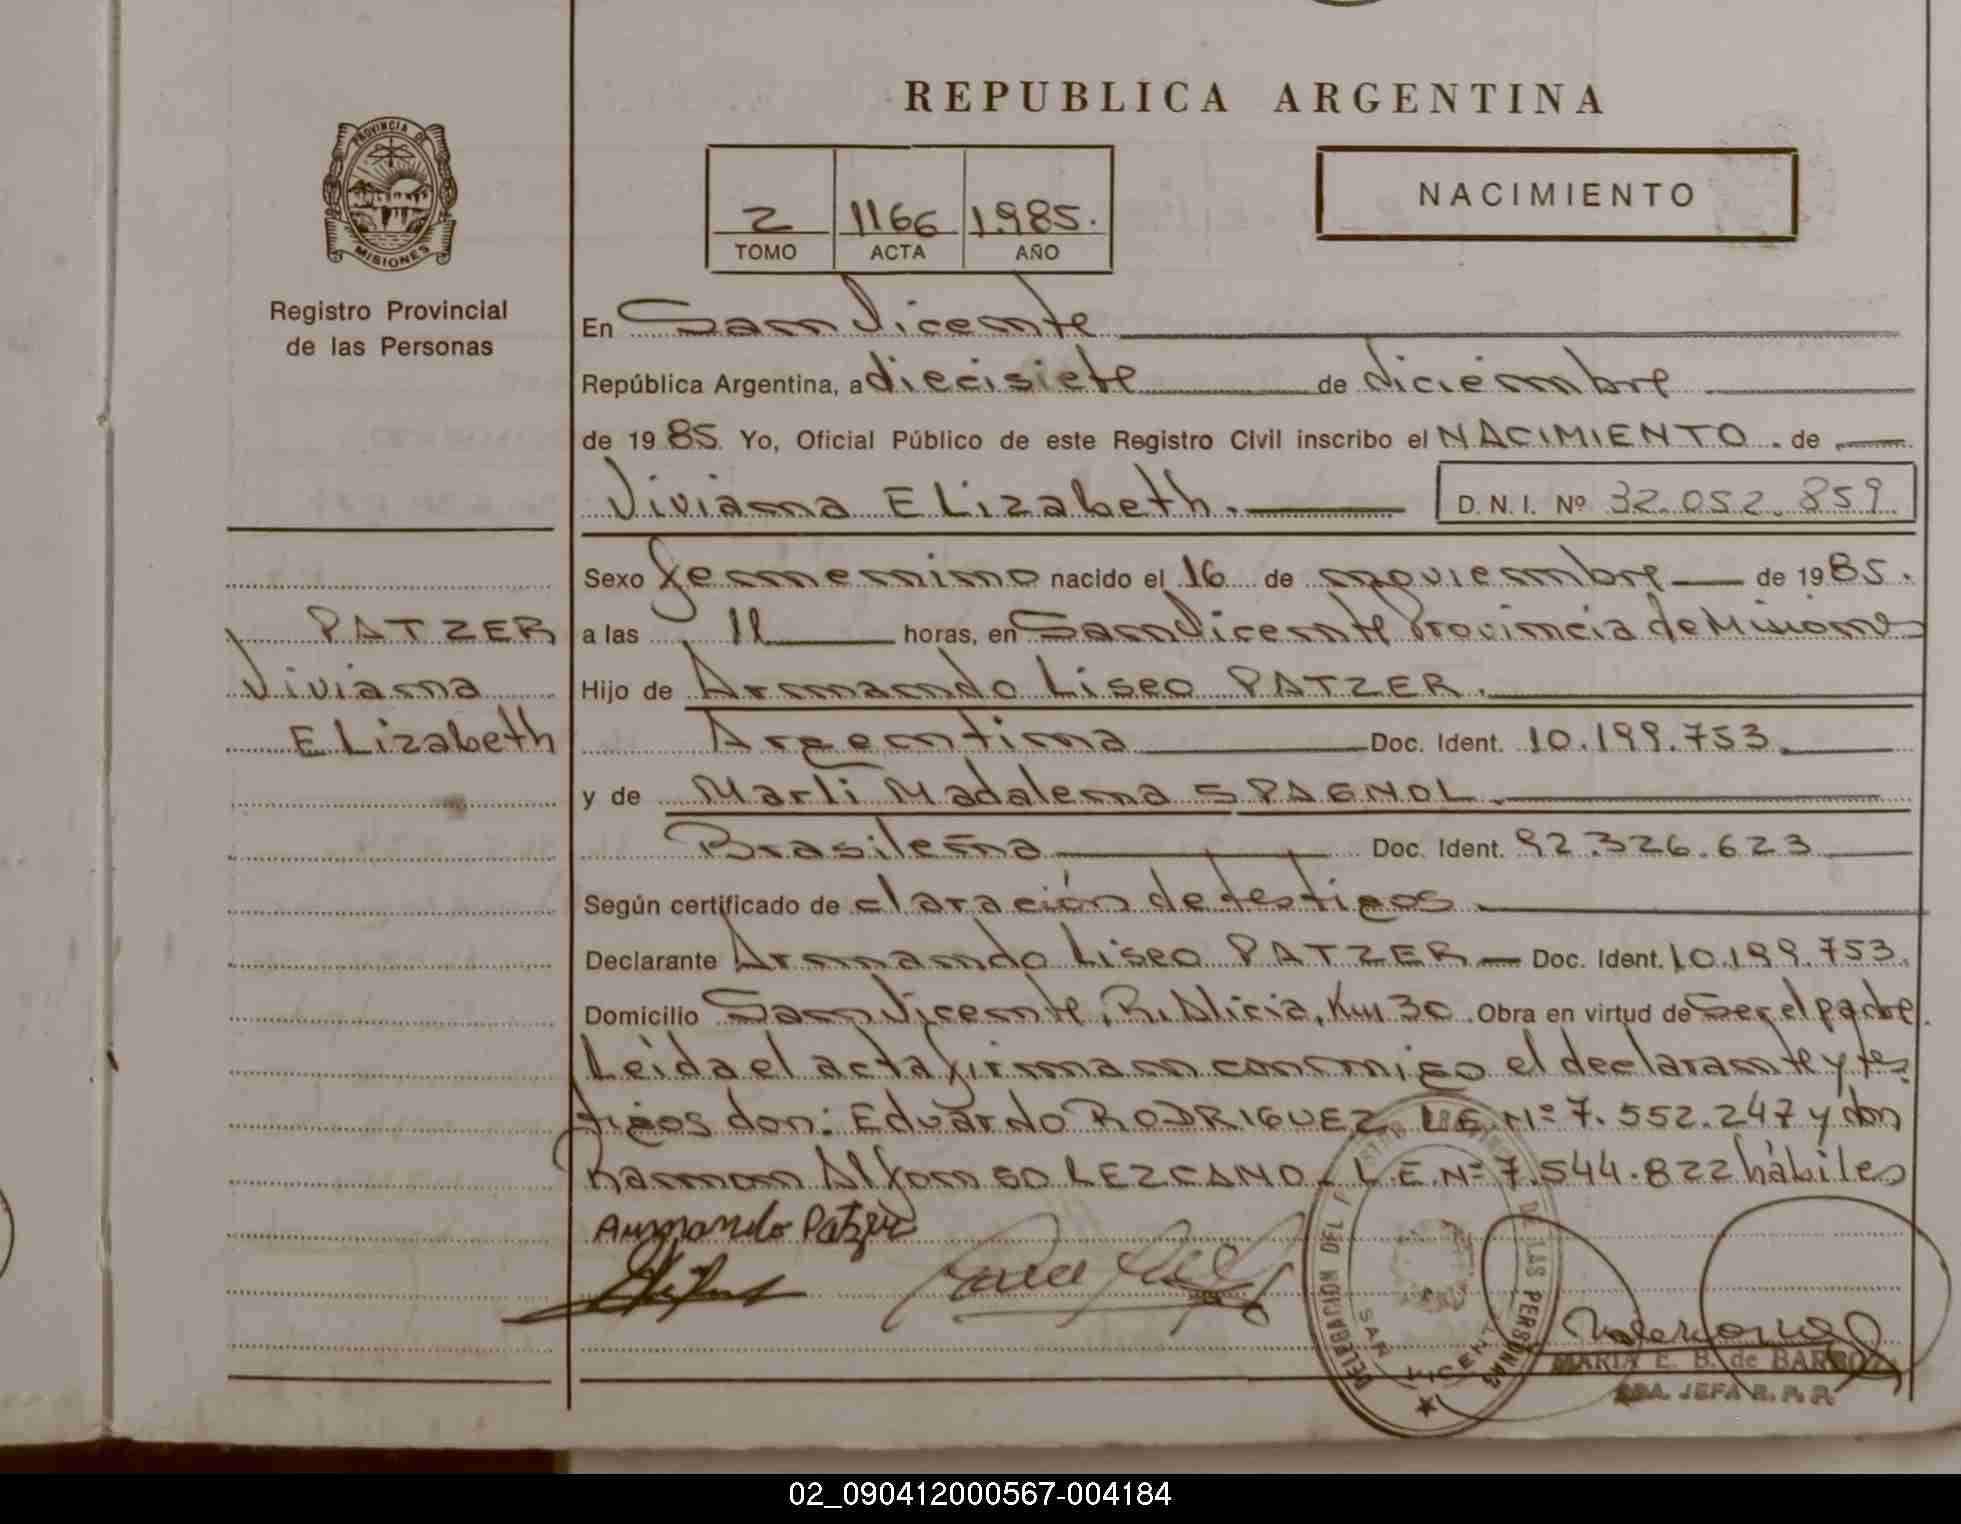 REPUBLICA ARGENTINA
PROVINCIA DE
MISIONES
Registro Provincial
de las Personas
2 1166 1.985.
TOMO ACTA AÑO
NACIMIENTO
En San Vicente
República Argentina, a diecisiete de diciembre
de 1985. Yo, Oficial Público de este Registro Civil inscribo el NACIMIENTO. de
Viviana ELizabeth. D. N. I. Nº 32.052.859
Sexo femenino nacido el 16 de noviembre de 1985.
PATZER
Viviana
ELizabeth
a las 11 horas, en San Vicente Provincia de Misiones
Hijo de Armando Liseo PATZER.
Argentina Doc. Ident. 10.199.753.
y de Marli Madalena SPAGNOL.
Brasileña Doc. Ident. 92.326.623
Según certificado de claración de testigos
Declarante Armando Liseo PATZER Doc. Ident. 10.199.753.
Domicilio San Vicente, R. Alicia, Km 30. Obra en virtud de Ser el padre.
Leída el acta firman conmigo el declarante y tes
tigos don: Eduardo RODRIGUEZ L.E.Nº 7.552.247 y don
Ramon Alfonso LEZCANO. L.E.Nº 7.544.822 hábiles
Armando Patzer
DELEGACION DEL DE LAS PERSONAS
SAN VICENTE
MARIA E. B. de BARBOZA
JEFA R. P. P.
02_090412000567-004184